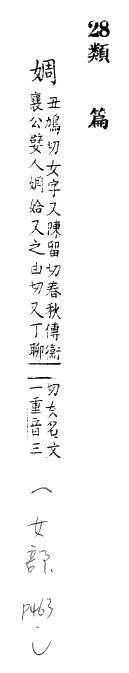 28
類篇
婤
丑鳩切女字又陳留切春秋傳衞
襄公嬖人婤姶又之由切又丁聊
切女名文
一重音三
(女部 P463)